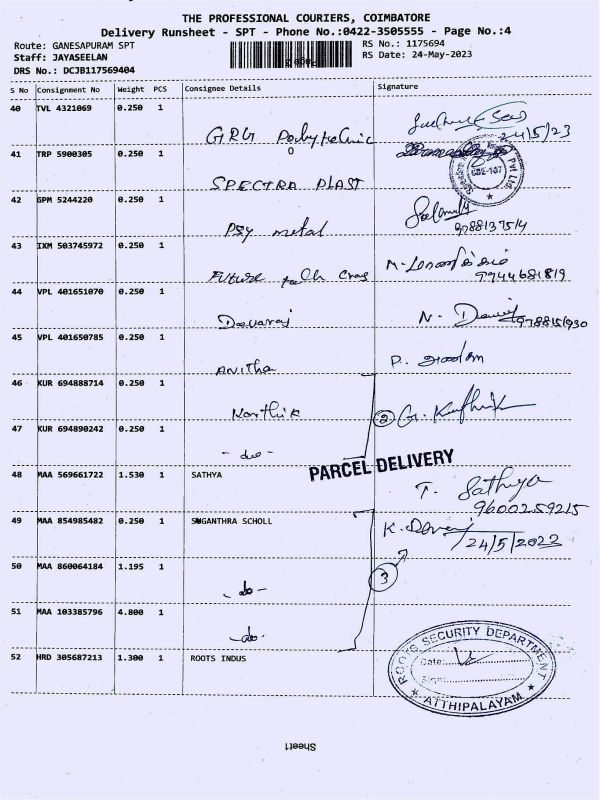 THE PROFESSIONAL COURIERS, COIMBATORE
Delivery Runsheet - SPT - Phone No.:0422-3505555 - Page No.:4
Route: GANESAPURAM SPT
Staff: JAYASEELAN
DRS No.: DCJB117569404
RS No.: 1175694
RS Date: 24-May-2023
S No Consignment No Weight PCS Consignee Details Signature
40 TVL 4321069 0.250 1 GRG Polytechnic 24/5/23
41 TRP 5900305 0.250 1 SPECTRA PLAST
42 GPM 5244220 0.250 1 PSY metal 9788137514
43 IXM 503745972 0.250 1 Future 7944681819
44 VPL 401651070 0.250 1 Devaraj N.
45 VPL 401650785 0.250 1 Anitha P.
46 KUR 694888714 0.250 1 Karthik 2 G. Karthik
47 KUR 694890242 0.250 1 - do -
PARCEL DELIVERY
48 MAA 569661722 1.530 1 SATHYA T. Sathya
9600259215
49 MAA 854985482 0.250 1 SUGANTHRA SCHOLL K. Devaraj
24/5/2023
50 MAA 860064184 1.195 1 - do - 3
51 MAA 103385796 4.800 1 - do -
52 HRD 305687213 1.300 1 ROOTS INDUS
ROOTS SECURITY DEPARTMENT
Date:
Sign:
ATTHIPALAYAM
Sheet1